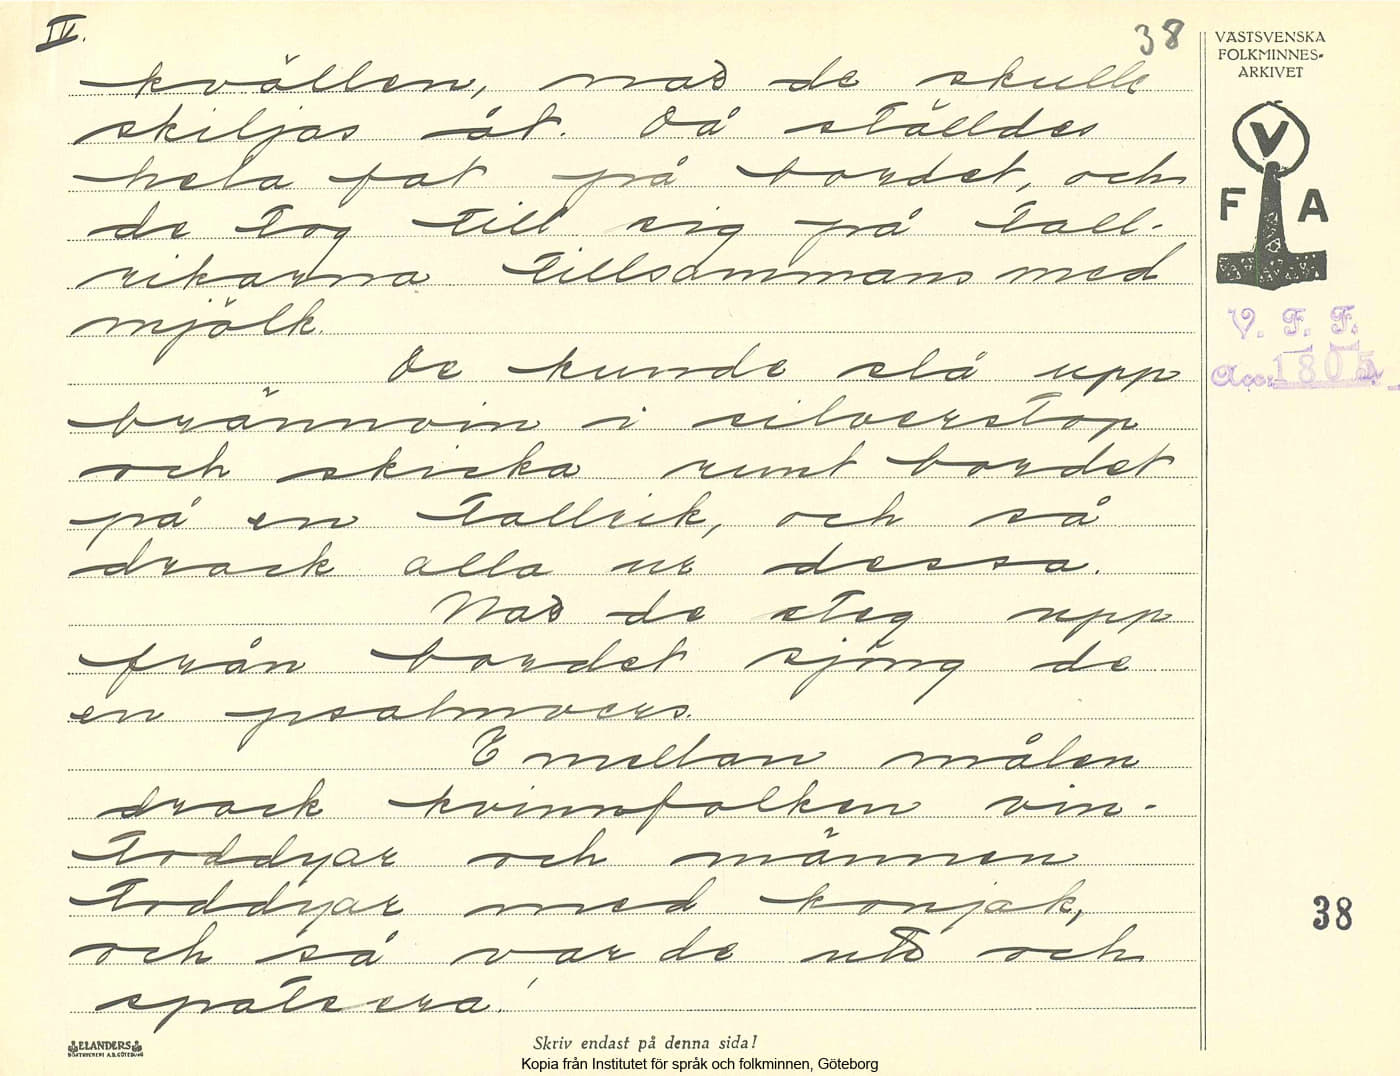 IV.
38
VÄSTSVENSKA
FOLKMINNES-
ARKIVET
V
F A
V. F. F.
Acc. 1805
kvällen, nar de skulle
skiljas åt. Då ställdes
hela fat på bordet, och
de tog till sig på tall-
rikarna tillsammans med
mjölk.
De kunde slå upp
brännvin i silverstop
och skicka runt bordet
på en tallrik, och så
drack alla ur dessa.
Nar de steg upp
från bordet sjöng de
en psalmvers.
E mellan målen
drack kvinnfolken vin-
toddyar och männen
toddyar med konjak,
och så var de ute och
spatsera!
38
ELANDERS
Skriv endast på denna sida!
Kopia från Institutet för språk och folkminnen, Göteborg